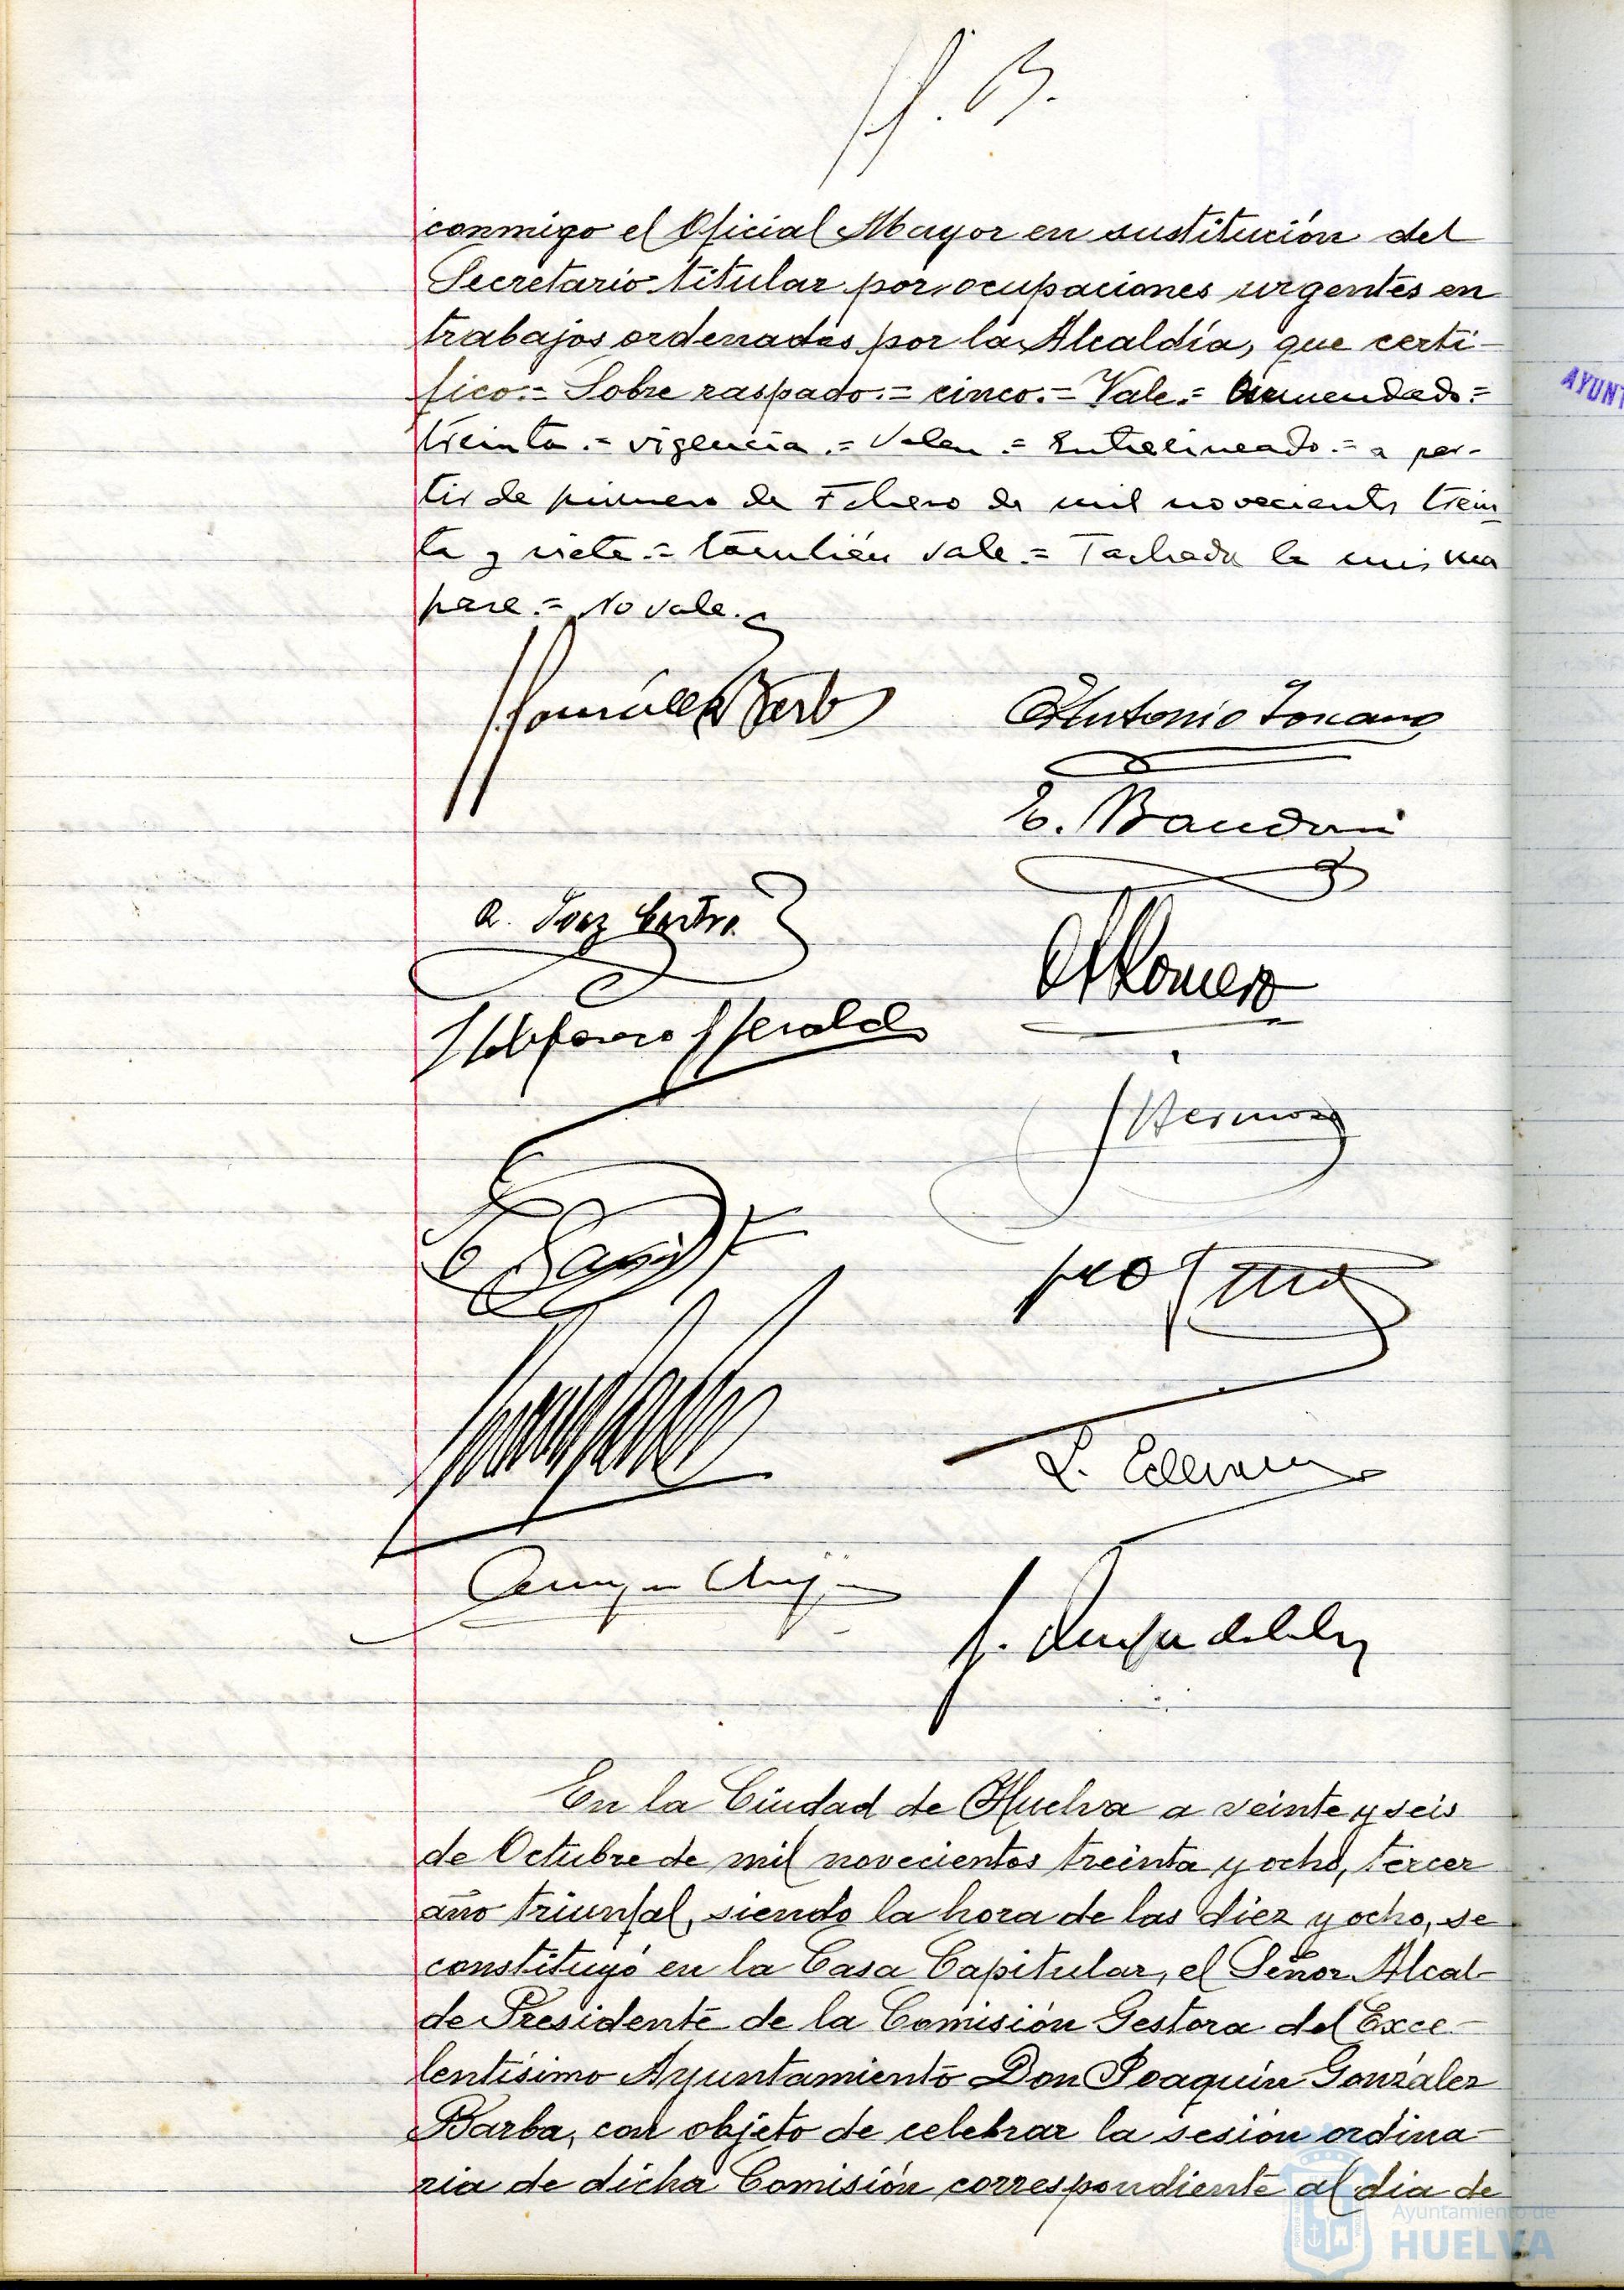 conmigo el Oficial Mayor en sustitución del
Secretario titular por ocupaciones urgentes en
trabajos ordenados por la Alcaldía, que certi-
fico.= Sobre raspado.= cinco.= Vale.= Enmendado=
treinta.= vigencia.= Valen.= Entrelineado.= a par-
tir de primero de Febrero de mil novecientos trein
ta y siete.= también vale.= Tachada la misma
frase.= No vale.
González Barba
Antonio Toscano
E.
Romero
J Hermoso
En la Ciudad de Huelva a veinte y seis
de Octubre de mil novecientos treinta y ocho, tercer
año triunfal, siendo la hora de las diez y ocho, se
constituyó en la Casa Capitular, el Señor Alcal-
de Presidente de la Comisión Gestora del Exce-
lentísimo Ayuntamiento Don Joaquín González
Barba, con objeto de celebrar la sesión ordina-
ria de dicha Comisión correspondiente al dia de
AYUNT
Ayuntamiento de
HUELVA